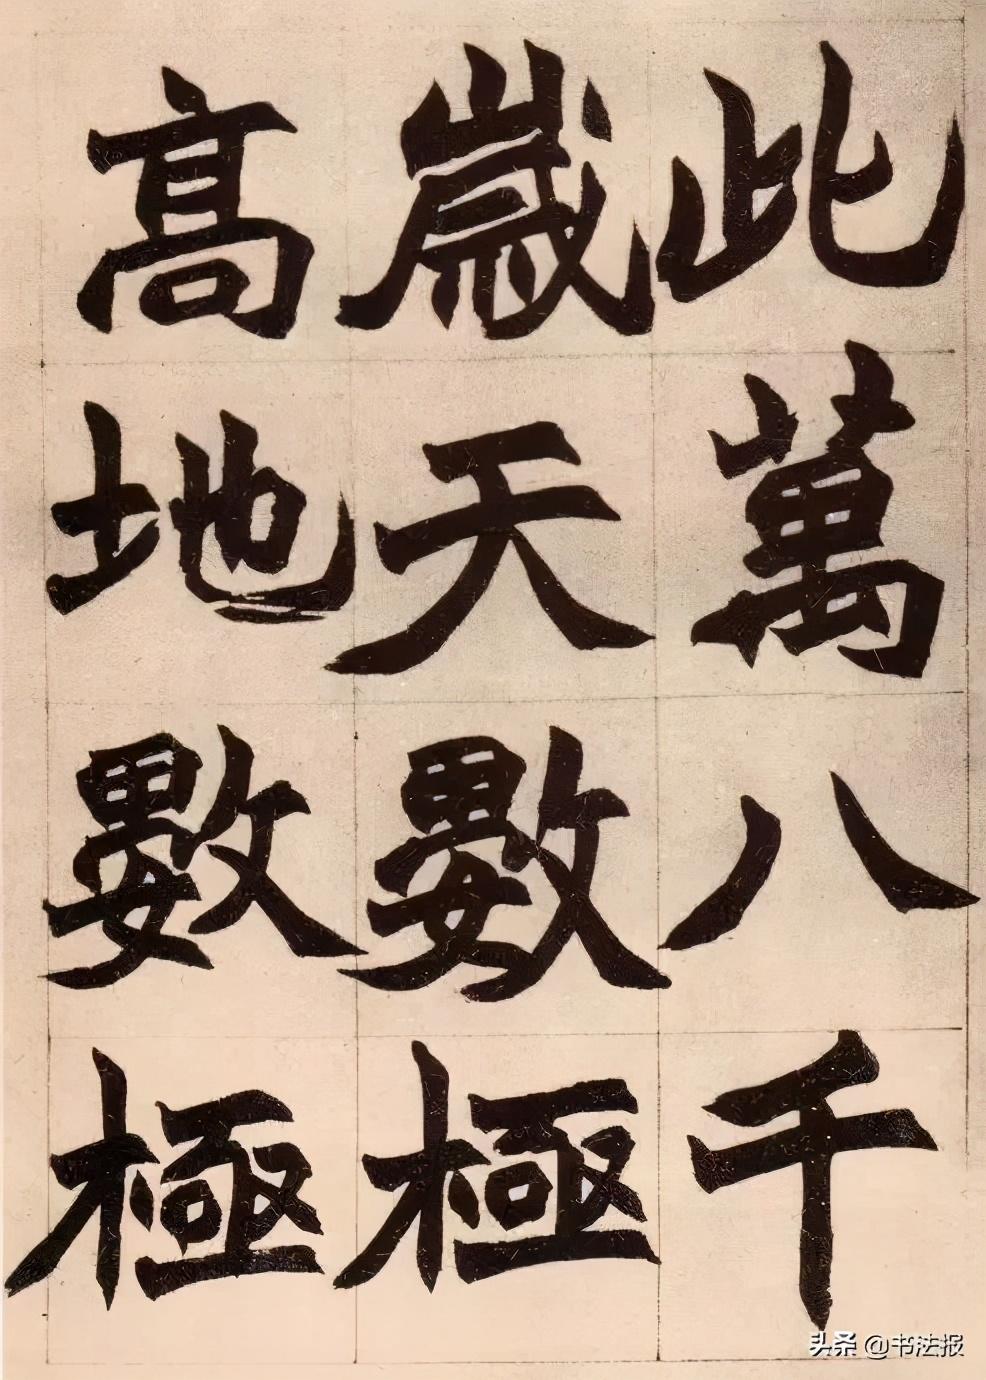 此萬八千
歲天數極
高地數極
头条 @书法报